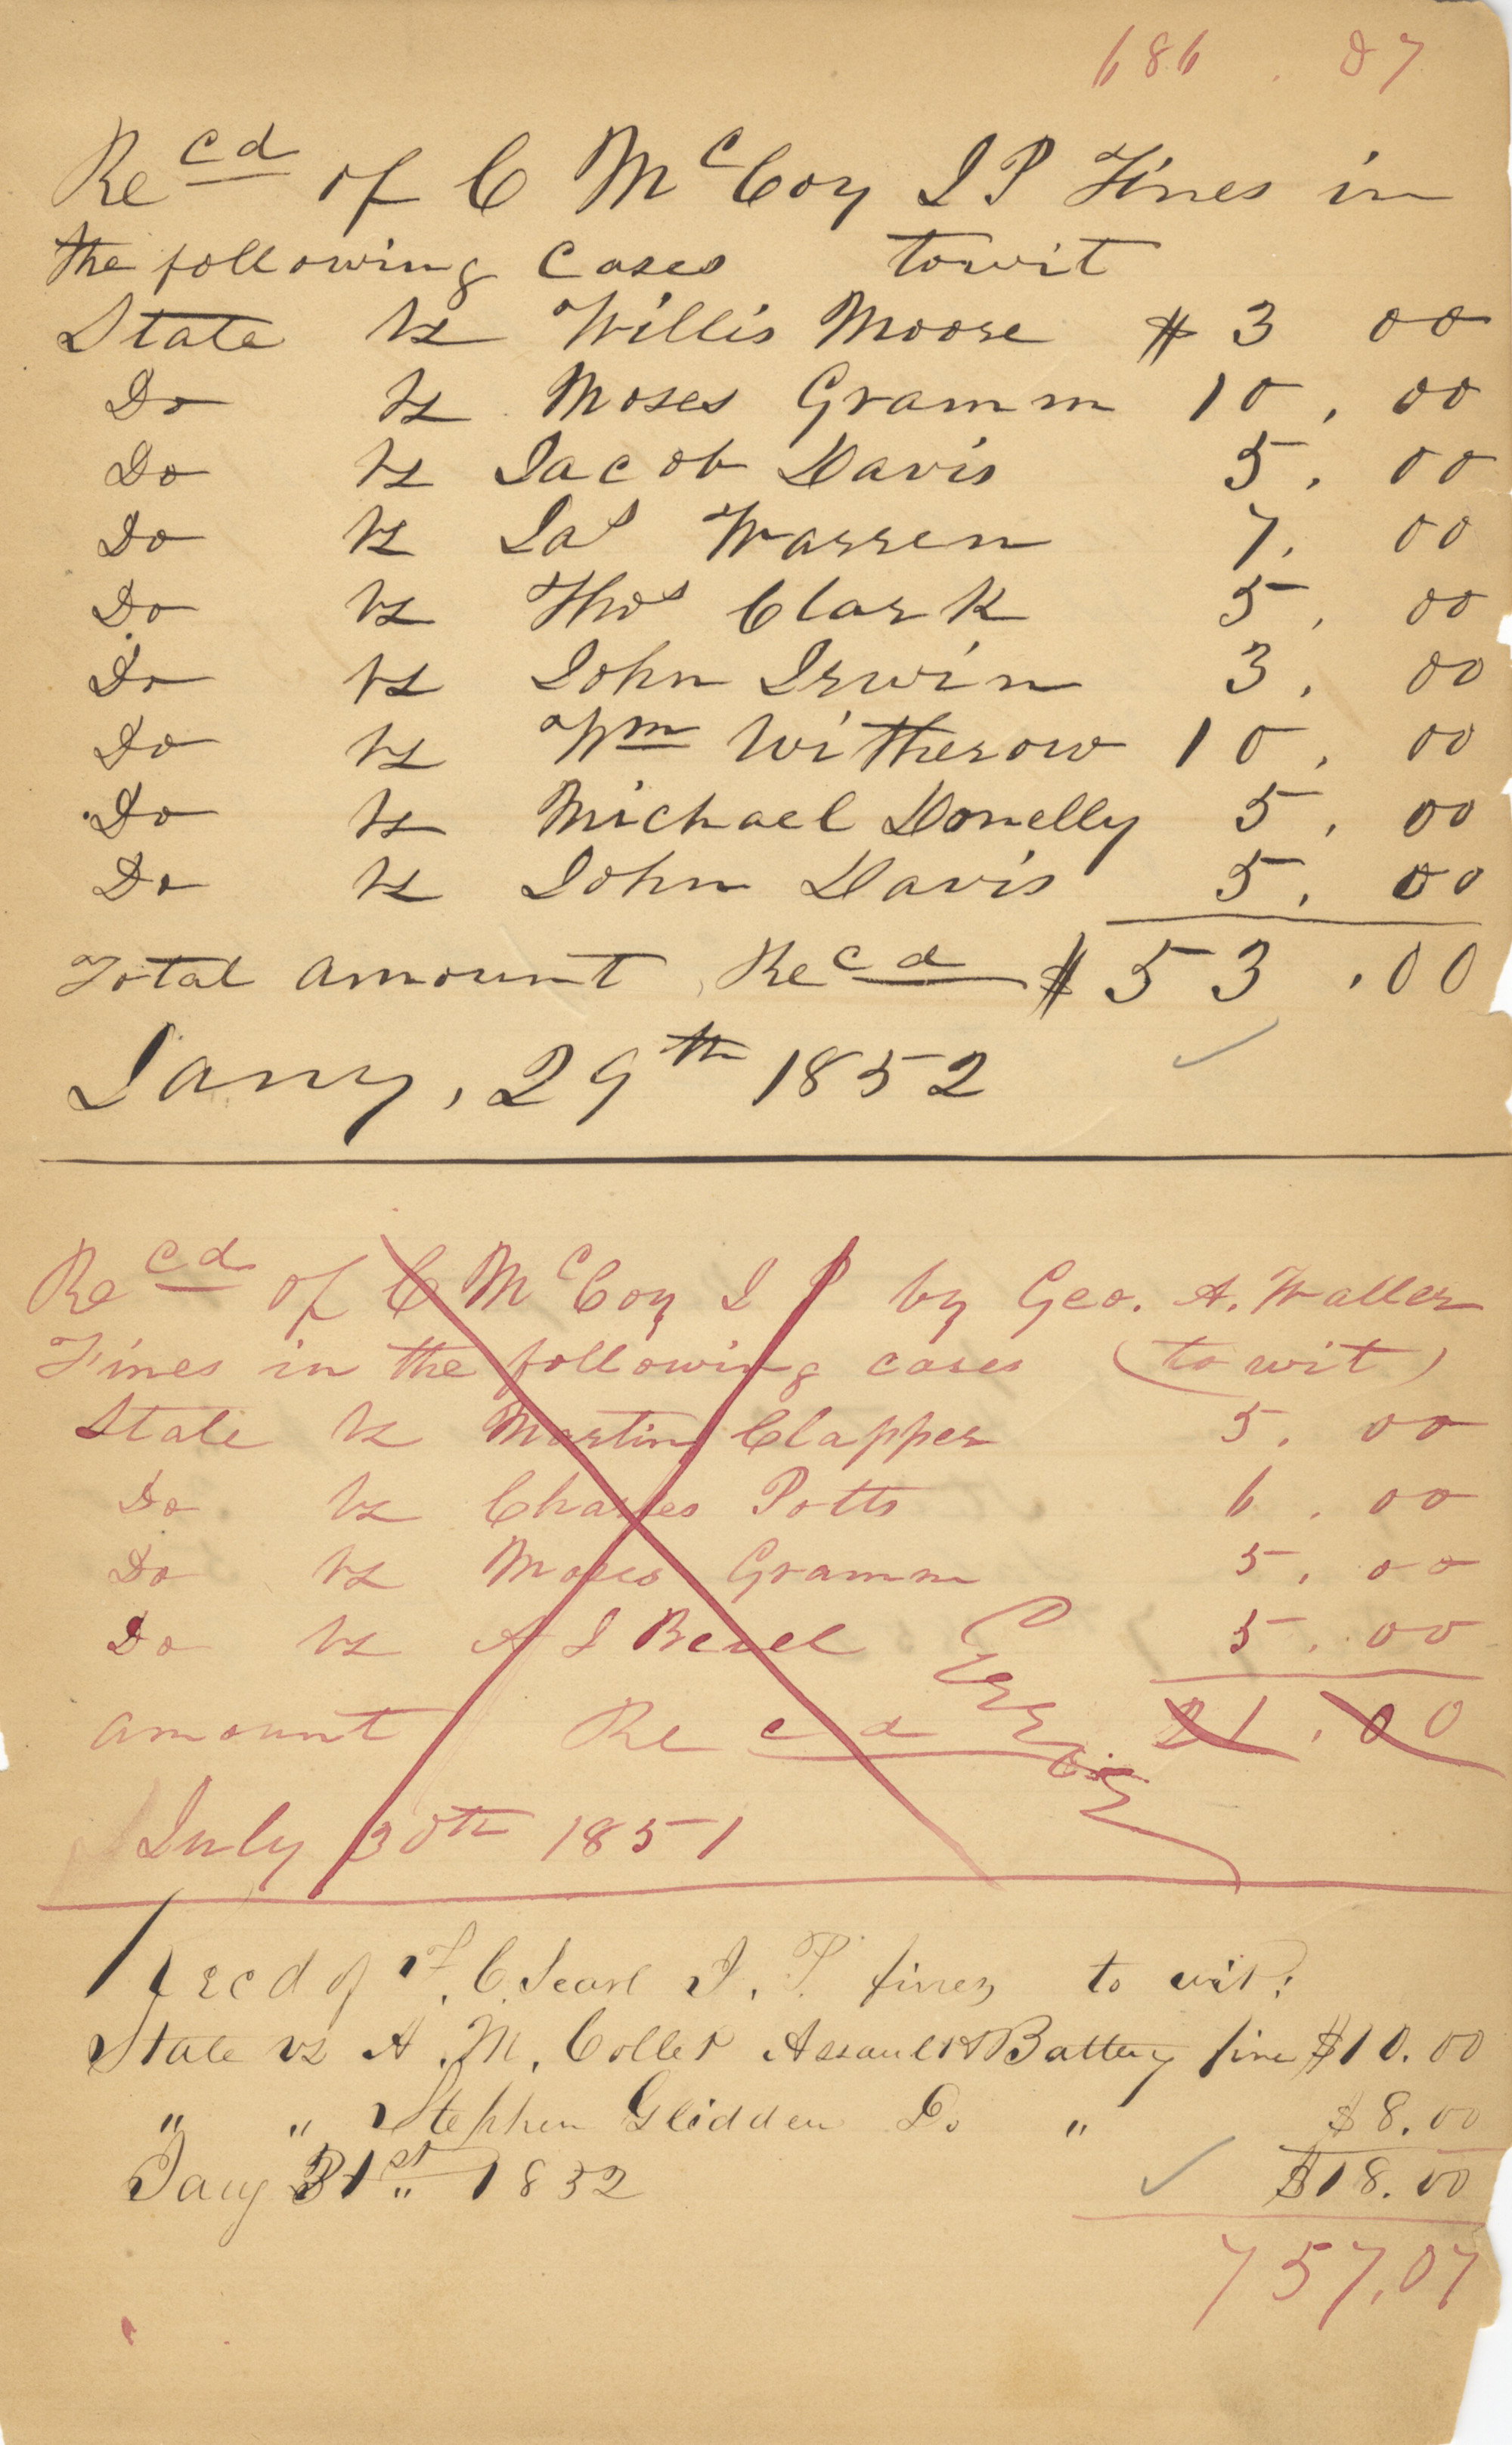 686 . 07
Recd of C McCoy J P Fines in
the following Cases towit
State vs Willis Moore $ 3 00
Do vs Moses Gramm 10 . 00
Do vs Jacob Davis 5 . 00
Do vs Jas Warren 7 . 00
Do vs Thos Clark 5 . 00
Do vs John Irwin 3 . 00
Do vs Wm Witherow 10 . 00
Do vs Michael Donelly 5 . 00
Do vs John Davis 5 . 00
Total amount Recd $ 53 . 00
Jany, 29th 1852 ✓
Recd of C McCoy J P by Geo. A. Waller
Fines in the following cases (to wit)
State vs Martin Clapper 5 . 00
Do vs Charles Potts 6 . 00
Do vs Moses Gramm 5 . 00
Do vs A J Bevel 5 . 00
Error
amount Recd 21 . 00
July 30th 1851
Recd of F. C. Searl J. P. fines to wit:
State vs A. M. Coller Assault & Battery fine $10.00
" " Stephen Glidden Do " $8.00
Jany 31st 1832 ✓ $18.00
757,07